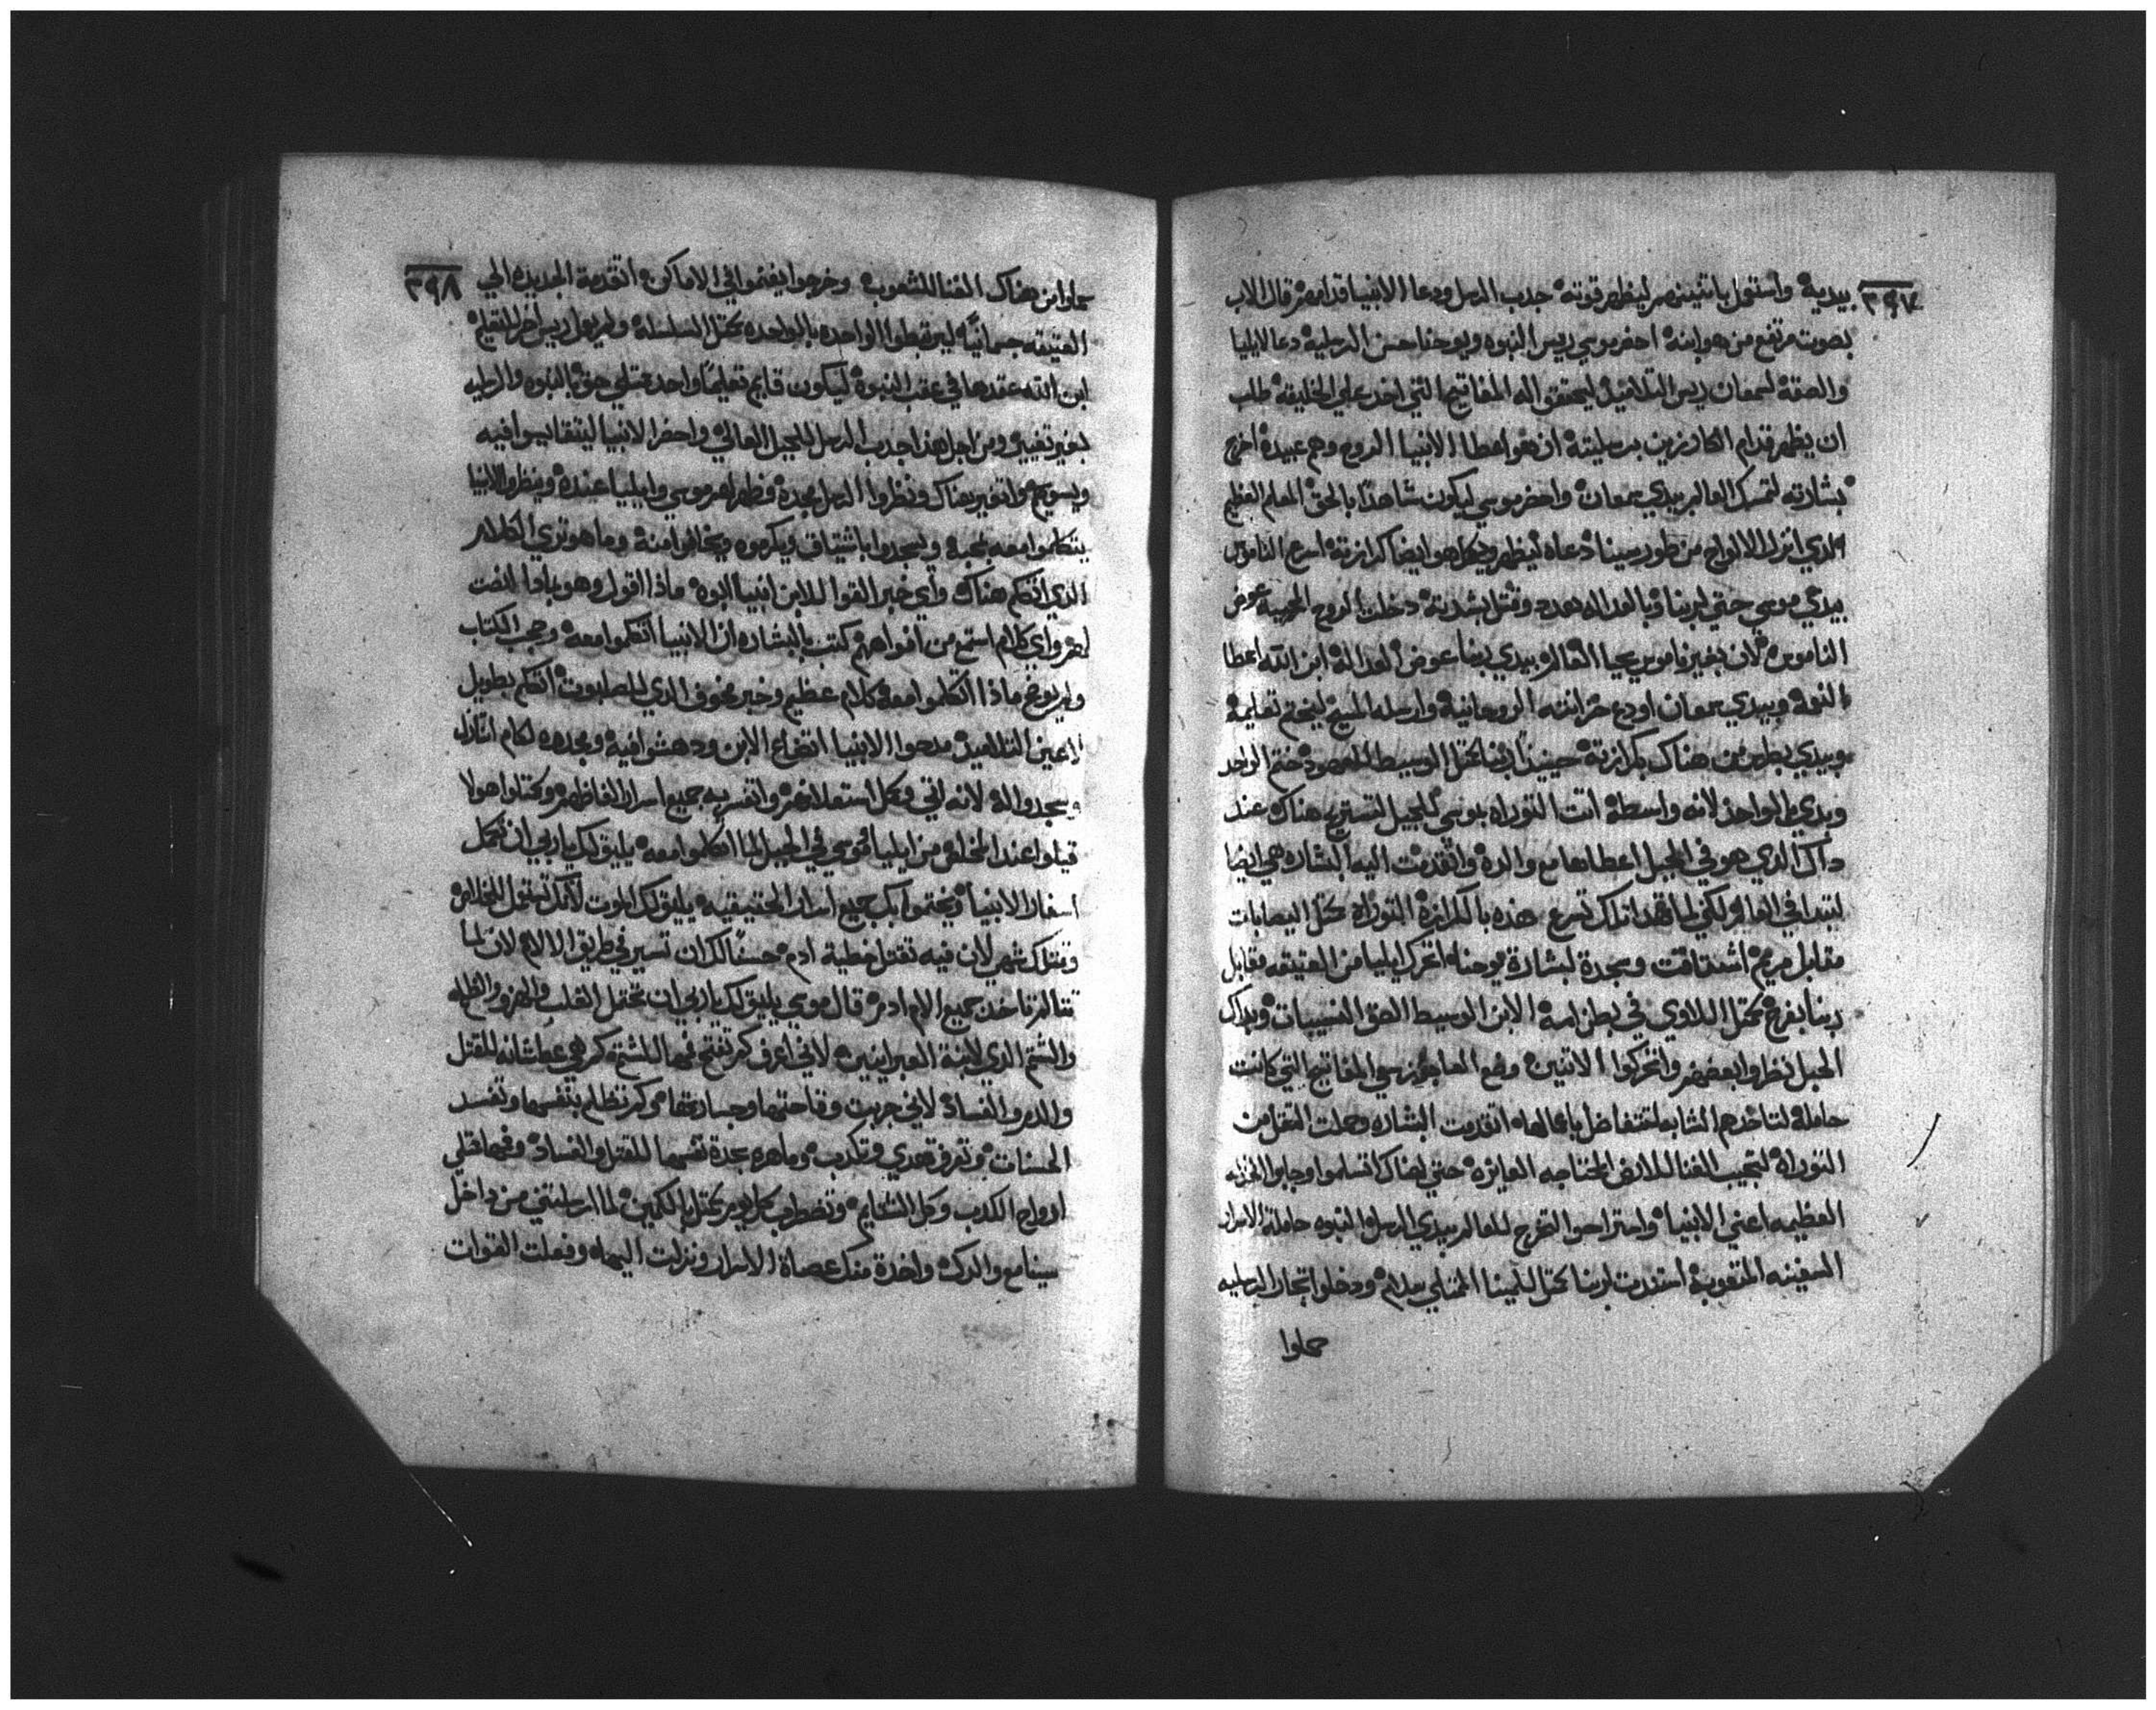 ٣٩٧
بيديه واستعمل باتنينهم ليظهر قوته جدب الرسل ودعا الانبيا قدامه ثم قال الاب
بصوت مرتفع من هو ابنه احضر موسي ريس النبوه ويوحنا حسن الرسليه دعا لايليا
والصقه لسمعان ريس التلاميذ ليحقق انه المفاتيح التي اخد علي الخليقه طلب
ان يظهر قدام الكارزين برسليته ان هو اعطا الانبيا الروح وهم عبيده اخرج
بشارته لتمسك العالم بيدي سمعان واحضر موسي ليكون شاهدا بالحق المعلم العظيم
الدي انزل الالواح من طور سينا دعاه ليظهر وهكدا هو ايضا كرازته اسرع الناموس
بيدي موسي حتي لربنا وبالعداله هدد وقتل بشدته دخلت الروح المحييه عوض
الناموس لان بغير ناموس يحيا العالم وبيدي ربنا عوض العداله ابن الله اعطا
النعمه وبيدي سمعان اودع خزانته الروحانيه وارسله المسيح ليختم تعليمه
وبيدي بطرس من هناك بكرازته حينيدا ربنا مثل الوسيط المقصود ختم الواحد
وبدي بالواحد لانه واسطه اتت التوراه بموسي للجبل لتستريح هناك عند
داك الدي هو في الجبل اعطاها مع والده واتقدمت اليه البشاره هي ايضا
لتبدا في العالم لكي لما تهدا تلك تسرع هده بالكرازه التوراه مثل اليصابات
مقابل مريم اشتاقت وسجدة لبشارة يوحنا اتحرك ايليا من العتيقه مقابل
ربنا بفرح مثل اللاوي في بطن امه الابن الوسيط الصق النسيبات وبداك
الجبل نظروا بعضهم واتحركوا الاتنين وضع العاجوز موسي المفاتيح التي كانت
حامله لتاخدهم الشابه لتتفاضل باعمالها اتقدمت البشاره وحملت التقل من
التوراه لتجيب الغنا للارض المحتاجه العايزه حتي لهناك اتسلموا وجابوا الخزنه
العظيمه اعني الانبيا واستراحوا التفرج للعالم بيدي الرسل النبوه حاملة الاسرار
السفينه المتعوبه استندت لربنا مثل للمينا الممتلي سلام ودخلوا تجار الرسليه
حملوا
٣٩٨
حملوا من هناك الغنا للشعوب وخرجوا يقتموا في الاماكن اتقدمة الجديده الي
العتيقه جسمانيًا ليرتبطوا الواحده بالواحده مثل السلسله ولم يعمل ريس اخر للتعليم
ابن الله عقدها في عقب النبوه ليكون قايم تعليمًا واحد ممتلي حق بالنبوه والرسليه
بغير تغيير ومن اجل هذا جدب الرسل للجبل العالي واحضر الانبيا ليتقابوا فيه
ويسوع اتغير هناك ونظروا الرسل مجده وظهر لهم موسي وايليا عنده ونظروا الانبيا
يتكلموا معه بمحبه وليسجدوا باشتياق ويكرموه ويخافوا منه وما هو تري الكلام
الدي اتكلم هناك واي خبر القوا للابن انبيا ابوه ماذا اقول وهو بادا النصت
لهم واي كلام استمع من افواههم كتب بالبشاره ان الانبيا اتكلموا معه وحجب الكتاب
ولم يوضح ماذا اتكلموا معه كلام عظيم وخبر مخوف الدي للصلبوت اتكلم بطويل
لاعين التلاميذ مدحوا الانبيا اتضاع الابن ودهشوا فيه ومجدوه
وسجدوا له لانه اتي وكمل استعلاناتهم واتفسر به جميع اسرار الفاظهم ومثلوا هولا
قيلوا عند المخلص من ايليا وموسي في الجبل لما اتكلموا معه يليق لك يا ربي ان تكمل
اسفار الانبيا ويختموا بك جميع اسرار الحقيقيه يليق لك الموت لانك تعمل الخلاص
وقتلك شهي لان فيه تقتل خطية ادم حسنًا لك ان تسير في طريق الالام لان لما
تتالم تاخد جميع الام ادم قال موسي يليق لك يا ربي ان تحتمل الصلب والهزو والظلم
والشتم الدي لابنة العبرانيين لاني اعرف كم تفتح فمها للشتم كم هي عطشانه للقتل
والدم والفساد لاني جربت وقاحتها وجسارتها وكم تظلم بنفسها وتفسد
الحسنات وتمرق تعدي وتكدب وماهره بجدة نفسها للقتل والفساد وفمها قتلي
ارواح الكدب وكل الشتايم وتضطرب كل يوم مثل بالكمين لما ارسلتني من داخل
سينا مع والدك واخدة منك عصاة الاسرار ونزلت اليها وفعلت القوات